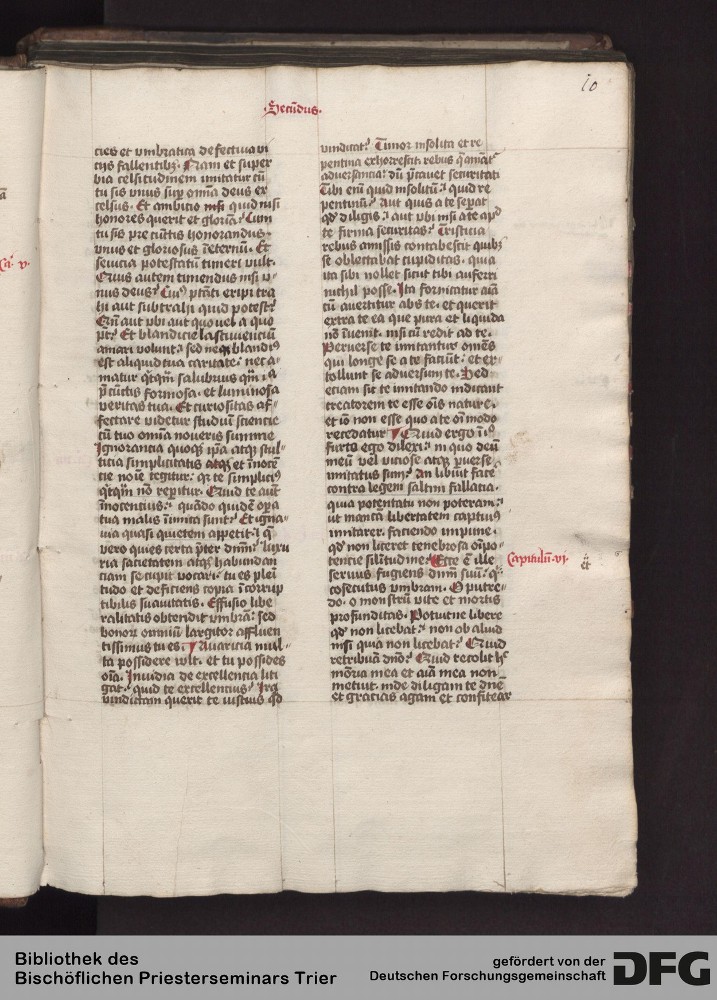 10
Secūdus
cies et vmbratica defectiua vi
cijs fallentibꝫ. Nam et super
bia celsitudinem imitatur cū
tu sis vnus sup omīa deus ex
celsus. Et ambicio nisi quid nisi
honores querit et gloriā. Cum
tu sis pre cūctis honorandus.
vnus et gloriosus ineternū. Et
seuicia potestatū timeri vult.
Quis autem timendus nisi v
nus deus. Cuiꝰ ptāti eripi tra
hi aut subtrahi quid potest.
Qn̄ aut vbi aut quo vel a quo
pt̄. Et blandicie lasciuienciū
amari volunt. sed neqꝫ blandiꝰ
est aliquid tua caritate. nec a
matur q̄tq̄m salubrius q̄m ita
p̄ cūctis formosa. et luminosa
veritas tua. Et curiositas af
fectare videtur studiū sciencie
cū tuo omīa noueris summe
Ignorancia quoqꝫ ip̄a atqꝫ stul
ticia simplicitatis atqꝫ et inocē
cie noīe tegitur. qꝫ te simpliciꝰ
q̄tq̄m nō reperitur. Quid te aut̄
inocencius. quādo quidē opa
tua malis inimica sunt. Et igna
uia quasi quietem appetit. q̄
vero quies certa preter dn̄m. luxu
ria sacietatem atqꝫ habundan
ciam se cupit vocari. tu es plei
tudo et deficiens copia incorrup
tibilis suauitatis. Effusio libe
ralitatis obtendit vmbrā. sed
bonorū omniū largitor affluen
tissimus tu es. Auaricia mul
ta possidere vult. et tu possides
oīa. Inuidia de excellencia liti
gat. quid te excellencius. Ira
vindictam querit te iustius qd
vindicat. Timor insolita et re
pentina exhorrescit rebus q̄ amāt
aduersancia. dū p̄cauet securitati
Tibi enī quid insolitū. quid re
pentinū. Aut quis a te separat
qd diligis. aut vbi nisi a te apd
te firma securitas. Tristicia
rebus amissis contabescit quibꝫ
se oblectabat cupiditas. quia
ita sibi nollet sicut tibi auferri
nichil posse. Ita fornicatur aīa
cū auertitur abs te. et querit
extra te ea que pura et liquida
nō inuenit. nisi cū redit ad te.
Peruerse te imitantur omēs
qui longe se a te faciūt. et ex
tollunt se aduersum te. Sed
eciam sic te imitando indicant
creatorem te esse oīs nature.
et iō non esse quo a te oī modo
recedatur. Quid ergo in
furto ego dilexi. in quo deū
meū vel viciose atqꝫ puerse
imitatus sum. An libuit face
contra legem saltim fallacia.
quia potentatu non poteram.
ut manca libertatem captiuꝰ
imitarer. faciendo impune.
qd non liceret tenebrosa oīpo
tencie silitudine. Ecce ē ille
seruus fugiens dnm̄ suū. et
cosecutus vmbram. O putre
do. o monstrū vite et mortis
profunditas. Potuitne libere
qd non licebat. non ob aliud
nisi quia non licebat. Quid
retribuā dnō. Quid recolit hꝰ
mōria mea et aīa mea non
metuit. inde diligam te dne
et gracias agam et confitear
Capitulū .vi.
ca .v.